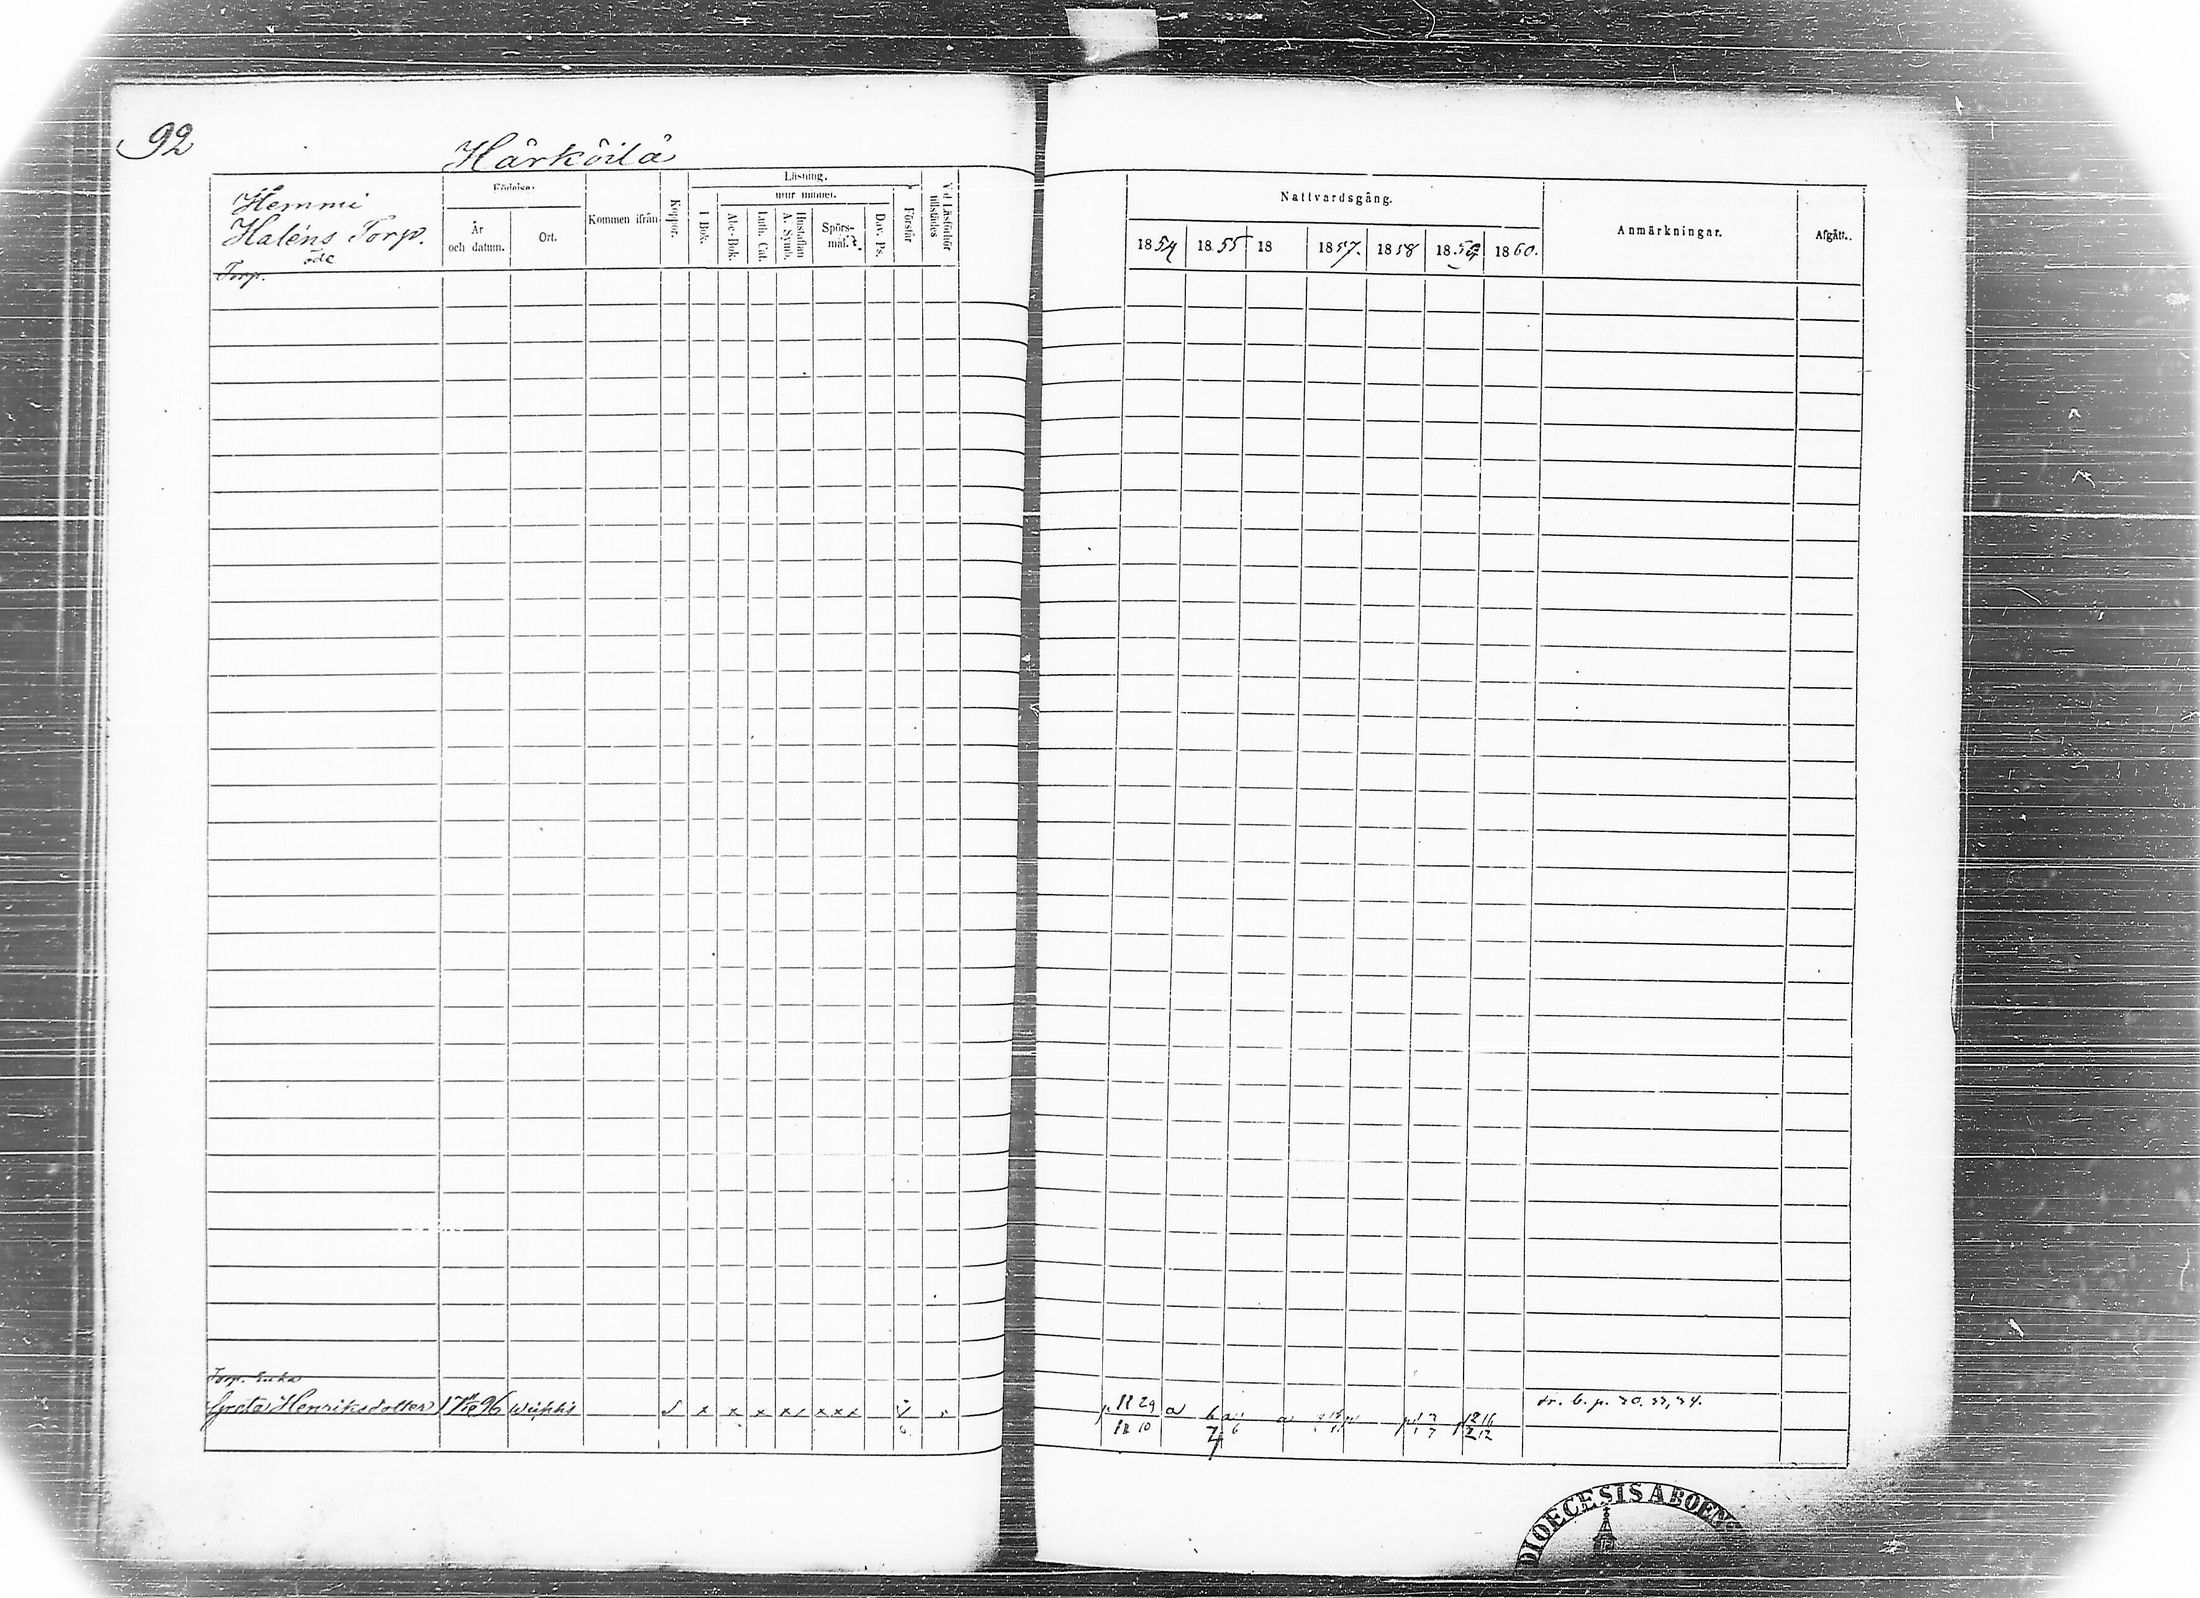 92
Härköilä
Hemmi
Haléns Torp.
öde
Torp.
Födelse.
År
och datum.
Ort.
Kommen ifrån
Koppor.
Läsning.
utur minnet.
I Bok.
Abc-Bok.
Luth. Cat.
Hustaflan
A. Symb.
Spörs-
mål.
Dav. Ps.
Förstår
Vid Läsförhör
tillstädes
Nattvardsgång.
1854
1855
18
1857.
1858
1859
1860.
Anmärkningar.
Afgått.
Torp. Enka
Greta Henriksdotter
96
a
a
tr. b. p.
DIOECESIS ABOEN